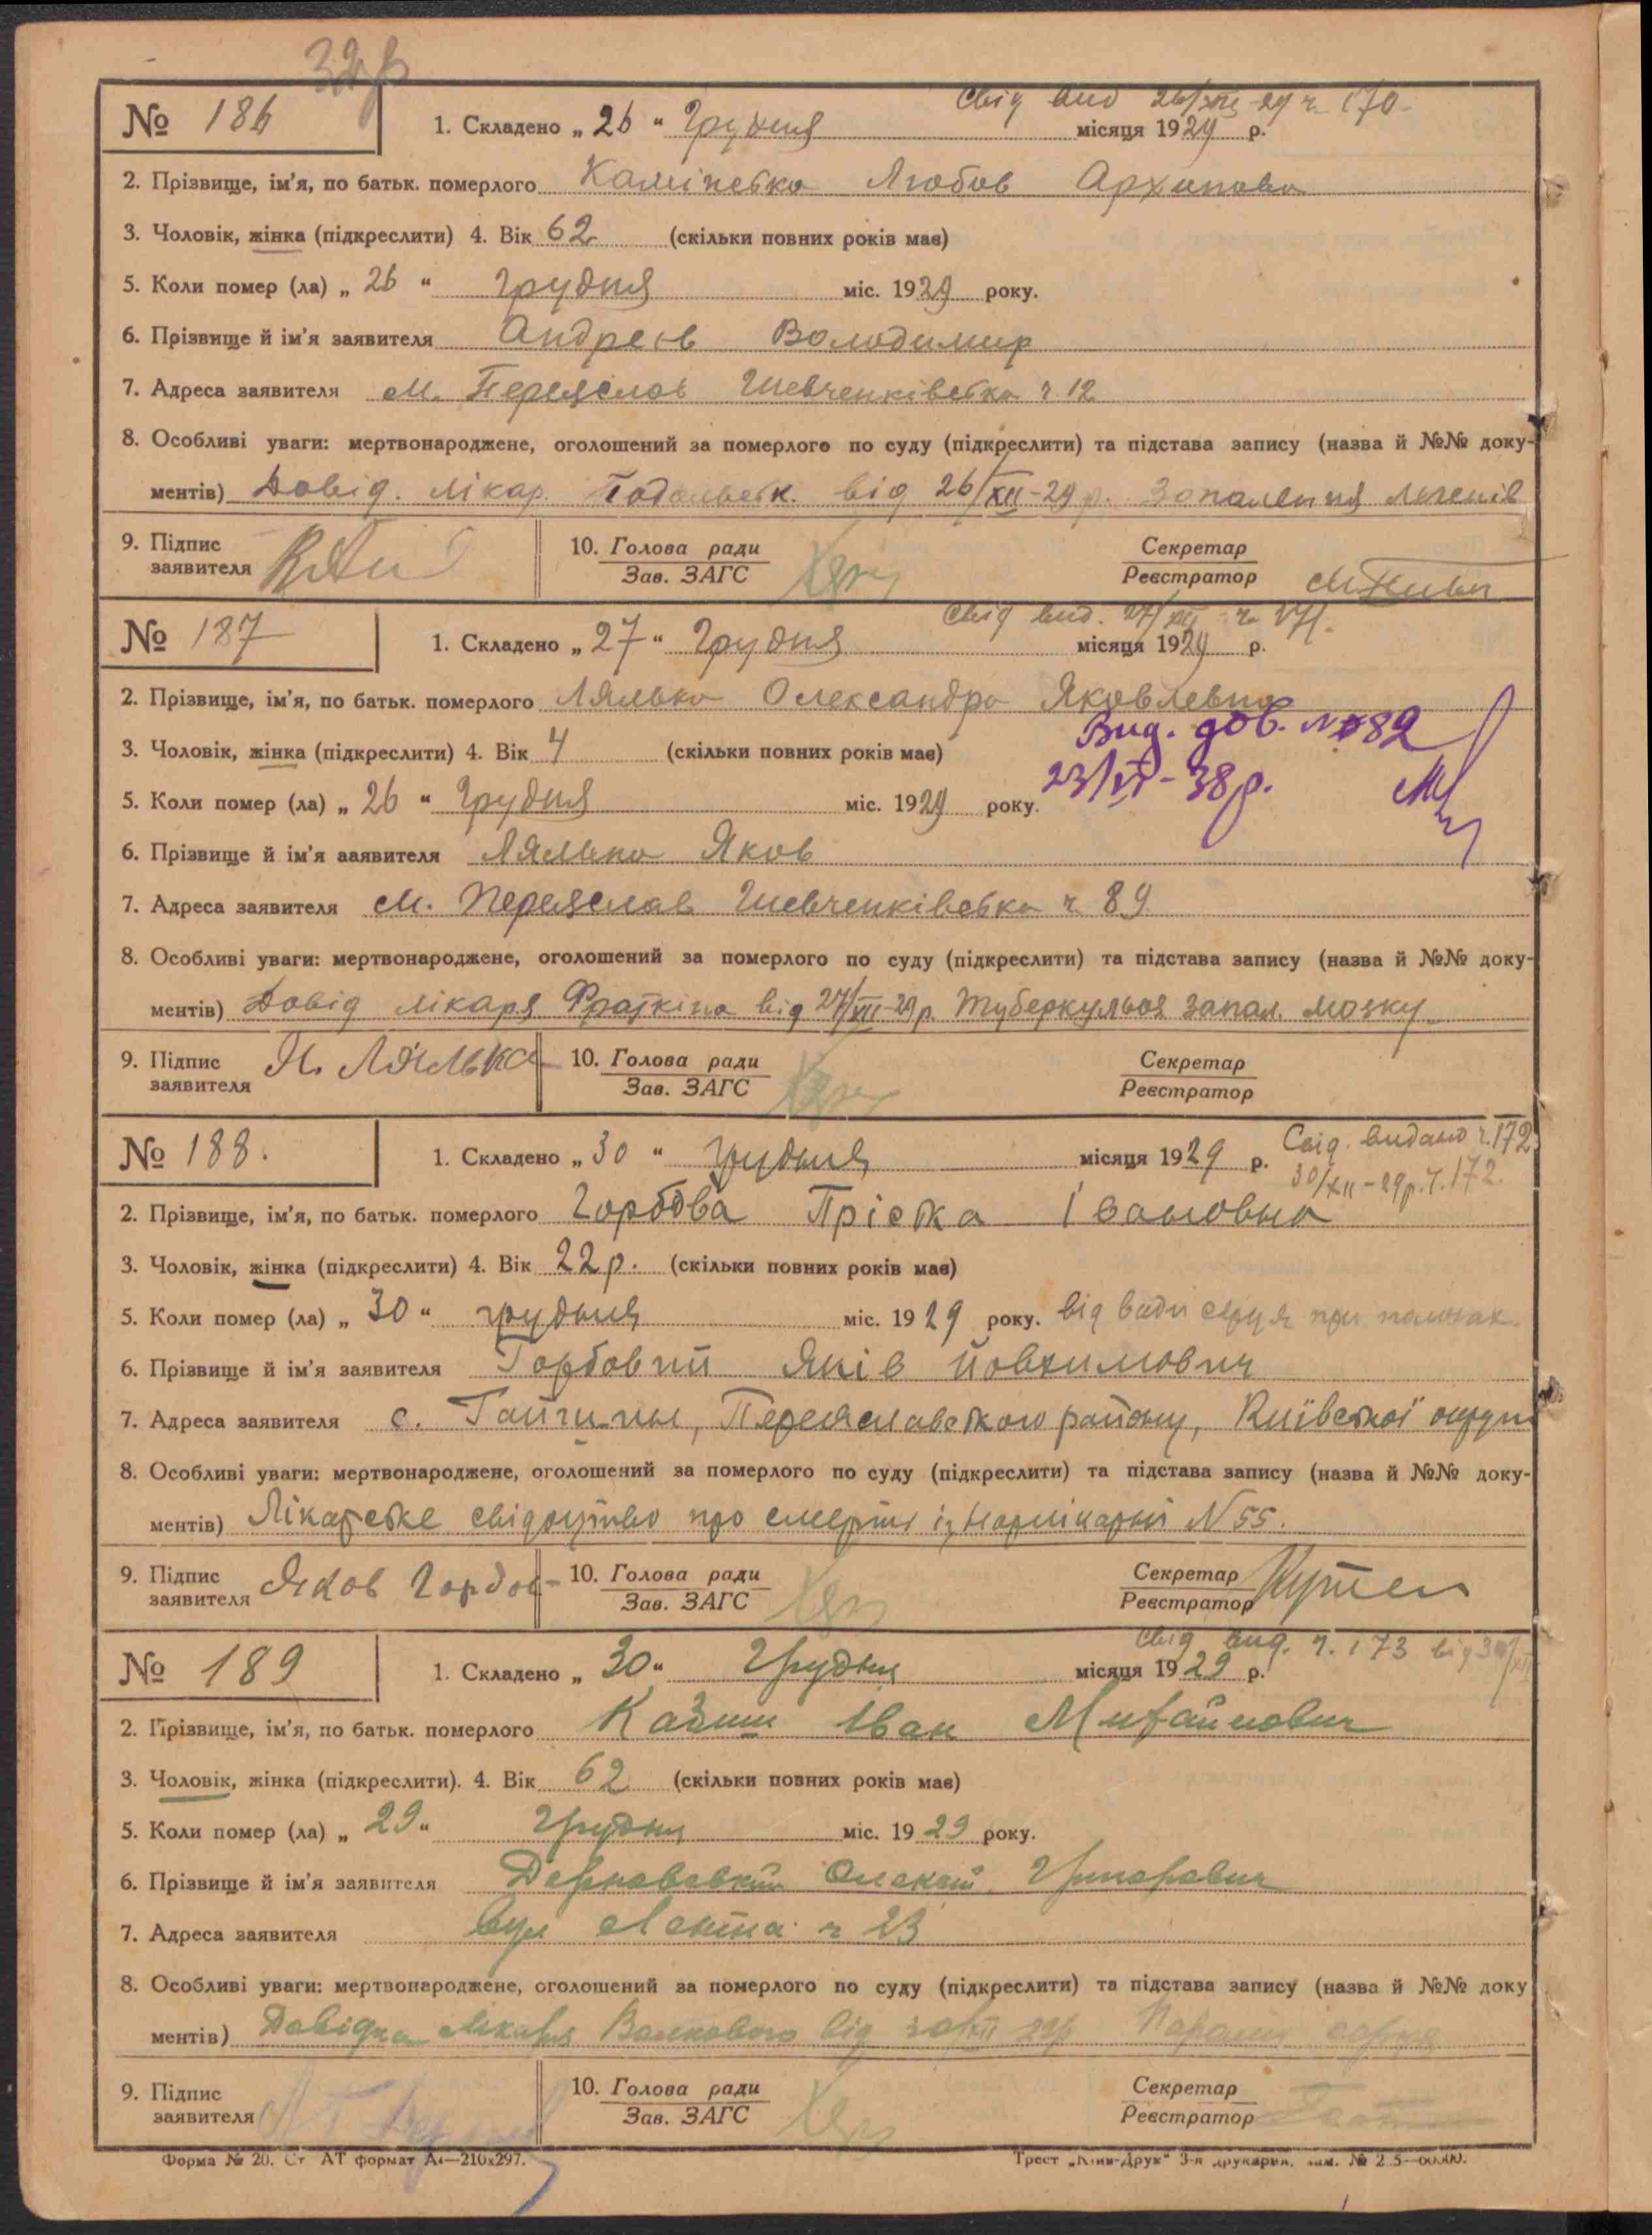 32
Свід вид 26/XII-29 ч 170
№ 186 1. Складено „26“ Грудня місяця 1929 р.
2. Прізвище, ім'я, по батьк. померлого Камінська Любов Архипова
3. Чоловік, жінка (підкреслити) 4. Вік 62 (скільки повних років має)
5. Коли помер (ла) „26“ грудня міс. 1929 року.
6. Прізвище й ім'я заявителя Андреєв Володимир
7. Адреса заявителя м. Переяслав Шевченківська ч 12
8. Особливі уваги: мертвонароджене, оголошений за померлого по суду (підкреслити) та підстава запису (назва й №№ доку-
ментів) Довід. лікар. від 26/XII-29 р. Запалення легенів
9. Підпис заявителя
10. Голова ради Секретар
Зав. ЗАГС Реєстратор
Свід вид. 27/XII ч 171.
№ 187 1. Складено „27“ Грудня місяця 1929 р.
2. Прізвище, ім'я, по батьк. померлого Лялька Олександра Яковлевна
Вид. дов. №82
3. Чоловік, жінка (підкреслити) 4. Вік 4 (скільки повних років має)
23/VI-38р.
5. Коли помер (ла) „26“ Грудня міс. 1929 року.
6. Прізвище й ім'я заявителя Лялько Яков
7. Адреса заявителя м. Переяслав Шевченківська ч 89
8. Особливі уваги: мертвонароджене, оголошений за померлого по суду (підкреслити) та підстава запису (назва й №№ доку-
ментів) Довід лікаря від 27/XII-29р. Туберкульоз запал. мозку
9. Підпис заявителя Я. Лялька
10. Голова ради Секретар
Зав. ЗАГС Реєстратор
№ 188. 1. Складено „30“ грудня місяця 1929 р. Свід. видано ч.172
30/XII-29р. ч.172.
2. Прізвище, ім'я, по батьк. померлого Горбова Пріська Івановна
3. Чоловік, жінка (підкреслити) 4. Вік 22р. (скільки повних років має)
5. Коли помер (ла) „30“ грудня міс. 1929 року. від вади серця при
6. Прізвище й ім'я заявителя Горбовий Яків Йовхимович
7. Адреса заявителя с. Гайшин, Переяславського району, Київської округи
8. Особливі уваги: мертвонароджене, оголошений за померлого по суду (підкреслити) та підстава запису (назва й №№ доку-
ментів) Лікарське свідоцтво про смерть із Нарлікарні N 55.
9. Підпис заявителя Яков Горбов
10. Голова ради Секретар
Зав. ЗАГС Реєстратор
Свід вид. ч. 173 від 30/XII
№ 189 1. Складено „30“ Грудня місяця 1929 р.
2. Прізвище, ім'я, по батьк. померлого Іван Михайлович
3. Чоловік, жінка (підкреслити). 4. Вік 62 (скільки повних років має)
5. Коли помер (ла) „29“ Грудня міс. 1929 року.
6. Прізвище й ім'я заявителя Григорович
7. Адреса заявителя вул Леніна ч 23
8. Особливі уваги: мертвонароджене, оголошений за померлого по суду (підкреслити) та підстава запису (назва й №№ доку
ментів) Довідка лікаря від 30/XII 29р Параліч серця
9. Підпис заявителя
10. Голова ради Секретар
Зав. ЗАГС Реєстратор
Форма № 20. Ст АТ формат А4—210х297. Трест „Київ-Друк“ 3-я друкарня.